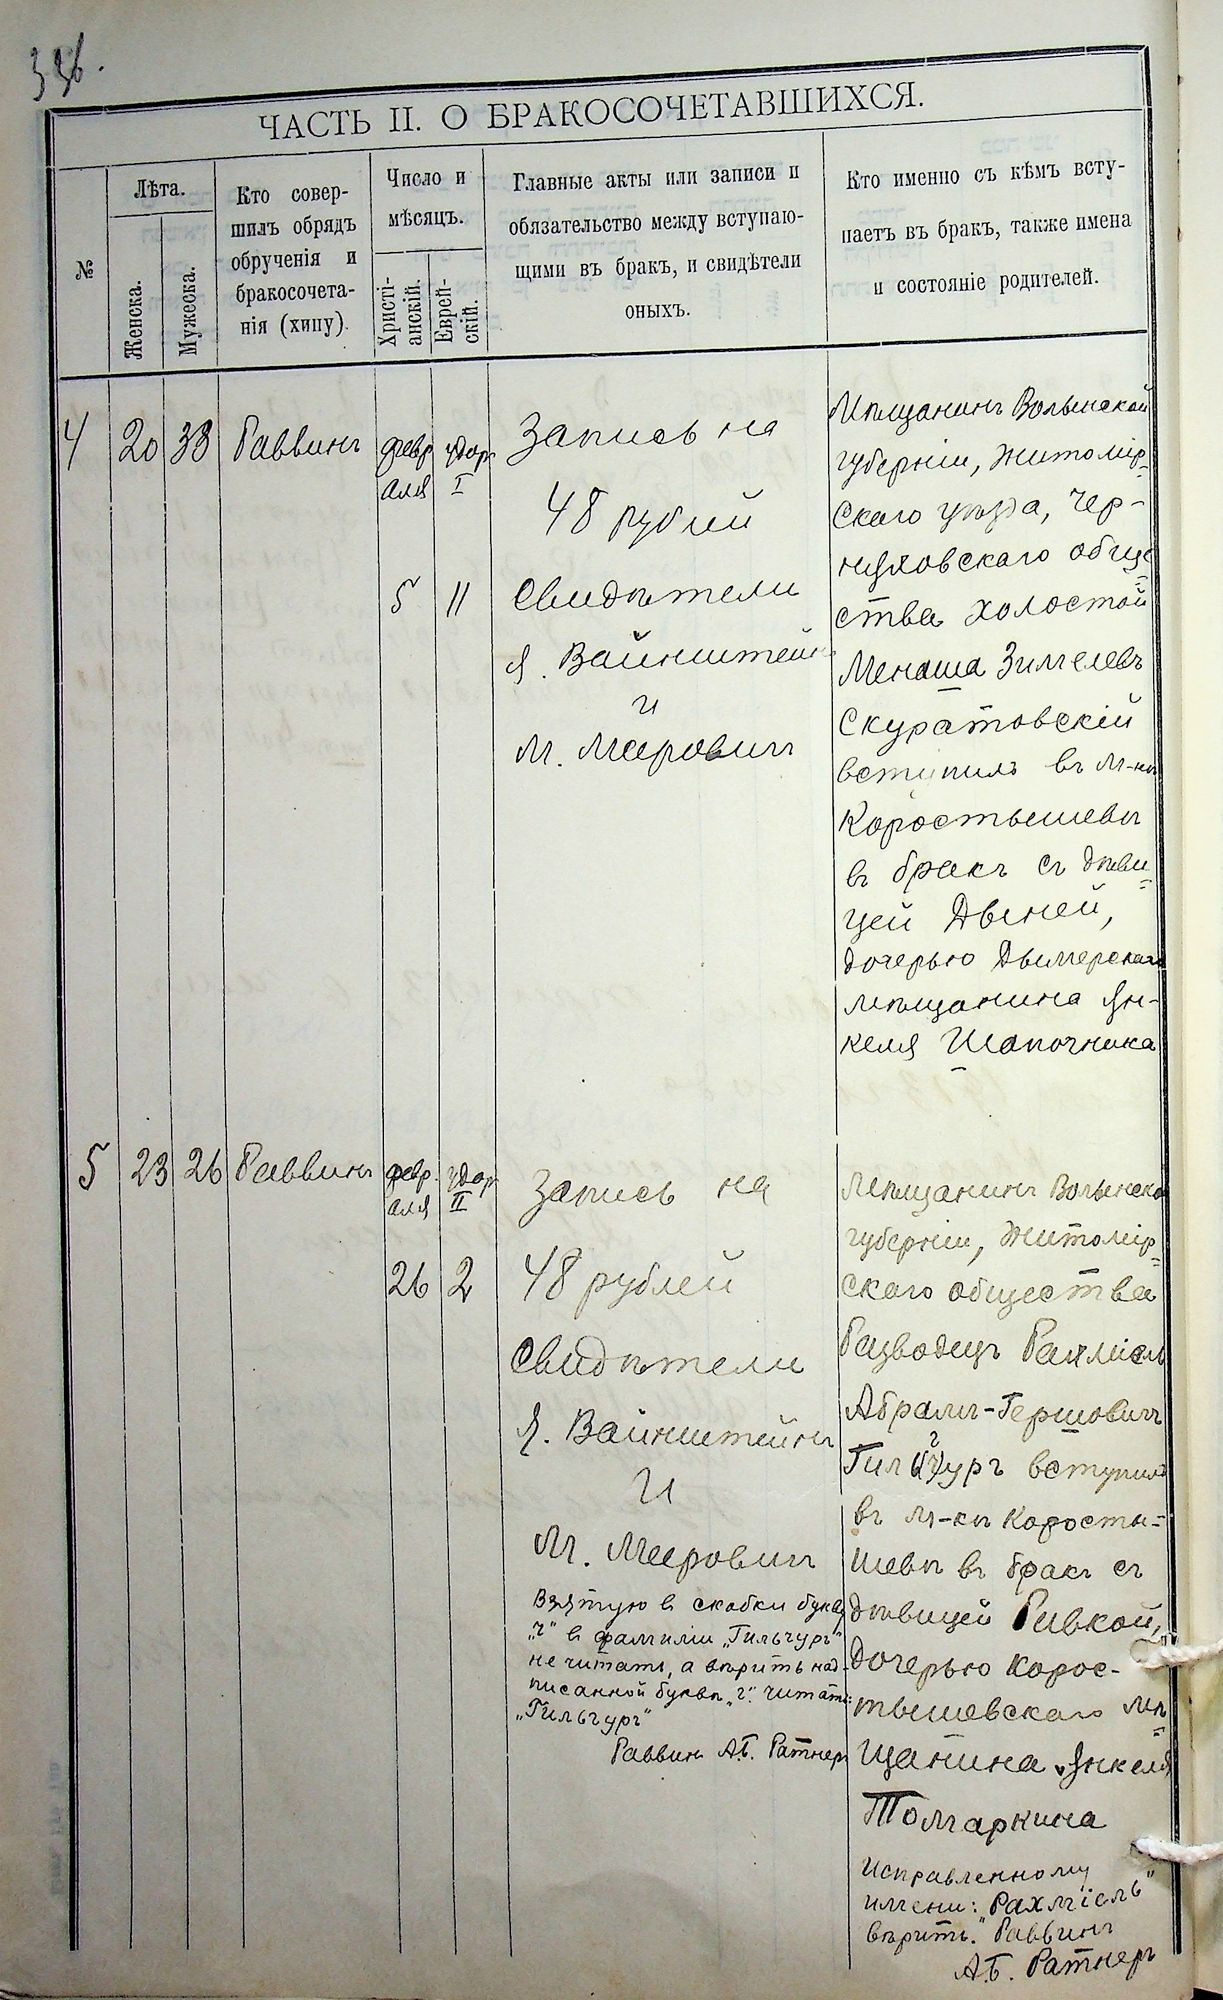 ЧАСТЬ II. О БРАКОСОЧЕТАВШИХСЯ.
№
Лѣта.
Женска.
Мужеска.
Кто совер-
шилъ обрядъ
обрученія и
бракосочета-
нія (хипу).
Число и
мѣсяцъ.
Христі-
анскій.
Еврей-
скій.
Главные акты или записи и
обязательство между вступаю-
щими въ бракъ, и свидѣтели
оныхъ.
Кто именно съ кѣмъ всту-
паетъ въ бракъ, также имена
и состояніе родителей.
4
20
38
Раввинъ
февр
аля
5
Адар
I
11
Запись на
48 рублей
Свидѣтели
Я. Вайнштейнъ
и
М. Меерович
Мѣщанинъ Волынской
губерніи, Житомір-
скаго уѣзда, Чер-
няховскаго обще
ства холостой
Менаша Зимелевъ
Скуратовскій
вступилъ въ М-кѣ
Коростышевѣ
въ бракъ съ дѣви
цей Двеней,
дочерью Дымерскаго
мѣщанина Ян-
келя Шапочника
5
23
26
Раввинъ
февр.
аля
26
Адар
II
2
Запись на
48 рублей
Свидѣтели
Я. Вайнштейнъ
И
М. Меерович
Взятую в скобки букву
„ч" в фамиліи „Гильчург"
не читать, а вѣрить над-
писанной буквѣ „г". читать:
„Гильгург"
Раввинъ А.Б. Ратнеръ
Мѣщанинъ Волынской
губерніи, Житомір-
скаго общества
Разводецъ Рахміель
Абрамъ-Гершович
г
Гиль(ч)ургъ вступилъ
въ м-кѣ Косты-
шевѣ въ бракъ съ
дѣвицей Ривкой,
дочерью Корос-
тышевскаго мѣ
щанина Янкеля
Томаркина
Исправленному
имени: Рахміель"
вѣрить." Раввинъ
А.Б. Ратнеръ